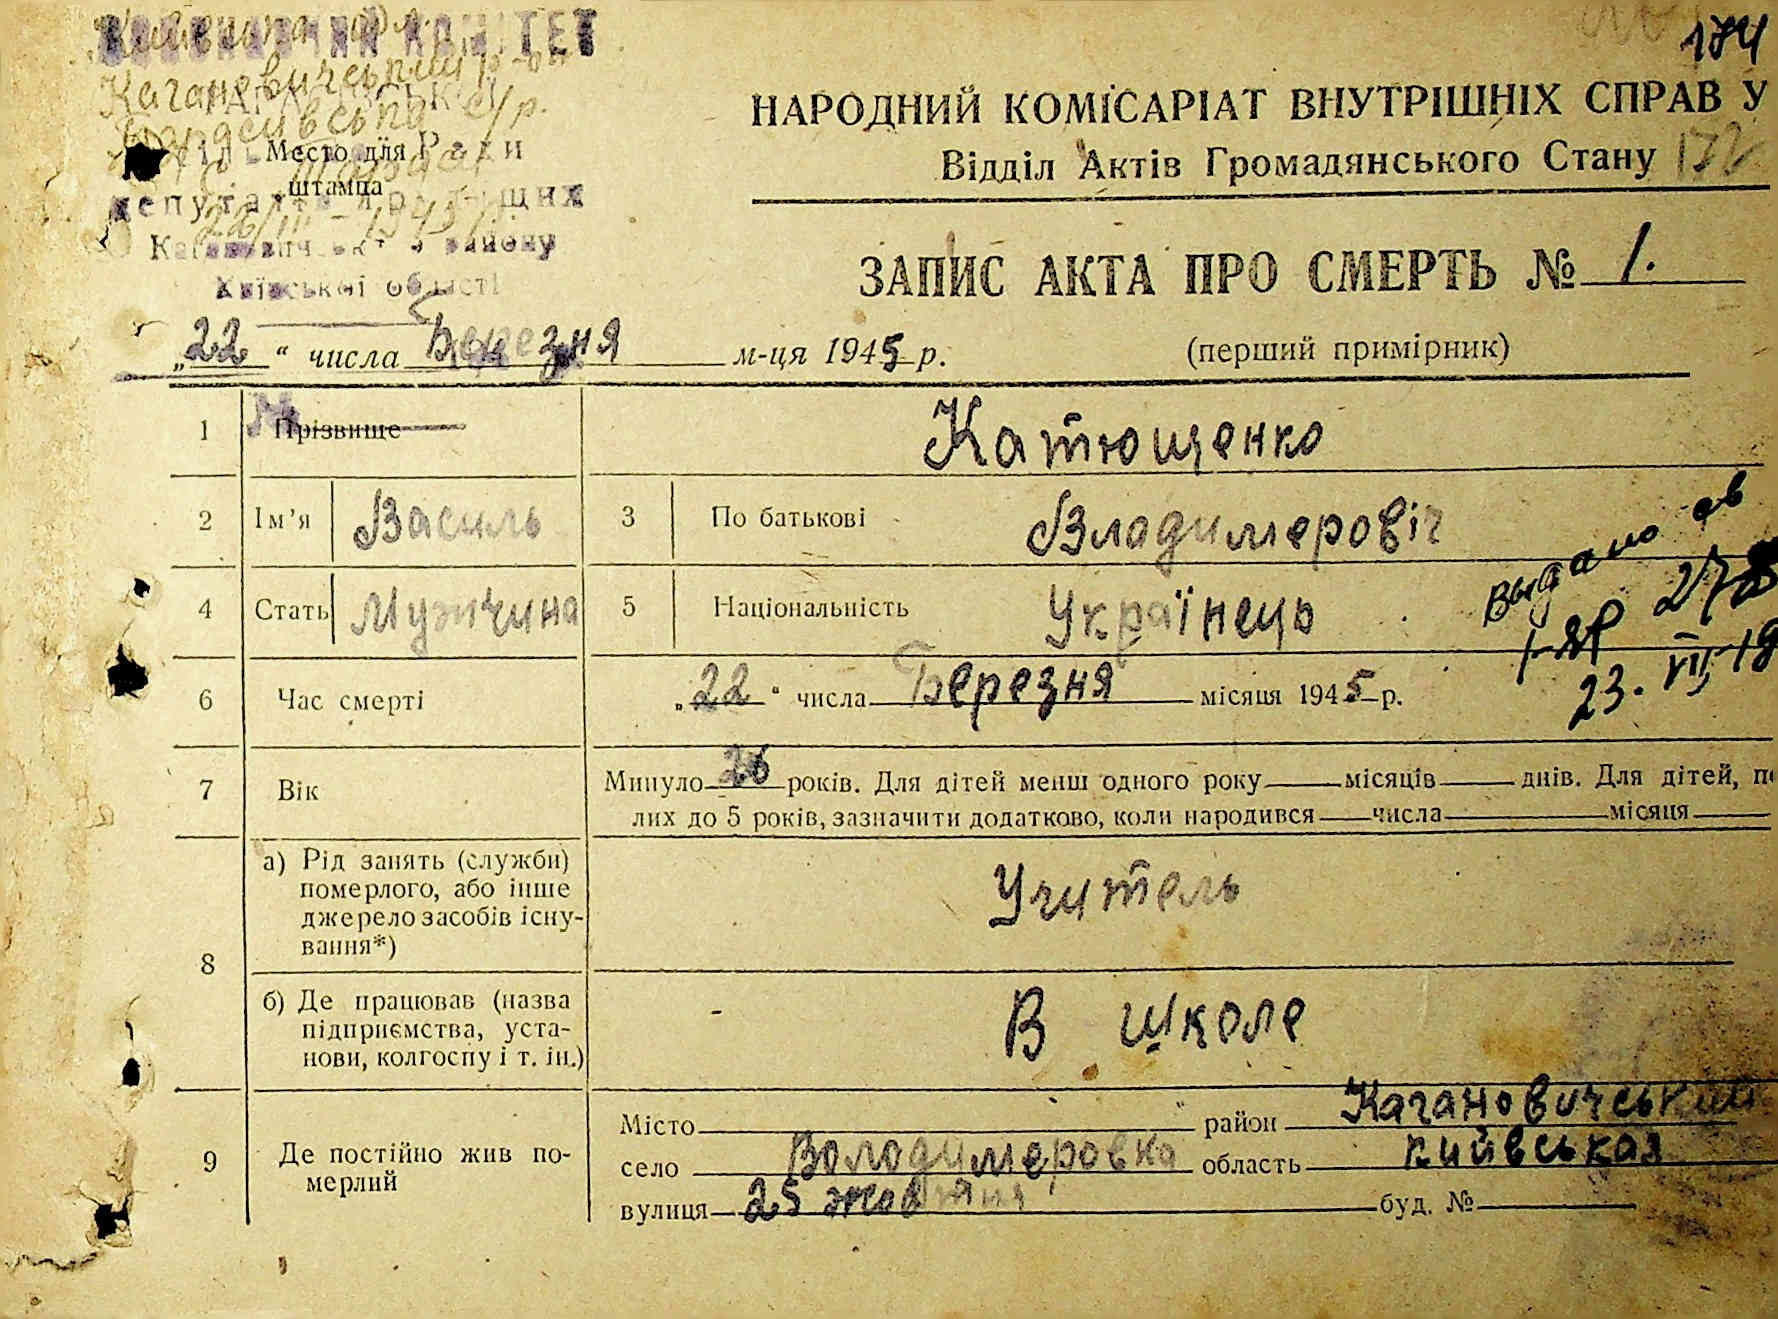 174
НАРОДНИЙ КОМІСАРІАТ ВНУТРІШНІХ СПРАВ У
Відділ Актів Громадянського Стану 172
Кагановичський р-он
Место для
штампа
Ради
депутатів
району
Київської області
ЗАПИС АКТА ПРО СМЕРТЬ № 1.
„22“ числа Березня м-ця 1945 р.
(перший примірник)
1 Прізвище Катющенко
2 Ім'я Василь 3 По батькові Владимеровіч
4 Стать Мужчина 5 Національність Українець
Выдано св
23. VII, 19
6 Час смерті „22“ числа Березня місяця 1945 р.
7 Вік Минуло 26 років. Для дітей менш одного року місяців днів. Для дітей,
лих до 5 років, зазначити додатково, коли народився числа місяця
8 а) Рід занять (служби)
померлого, або інше
джерело засобів існу-
вання*)
Учитель
б) Де працював (назва
підприємства, уста-
нови, колгоспу і т. ін.)
В школе
9 Де постійно жив по-
мерлий
Місто район Кагановичський
село Володимеровка область Кийвськая
вулиця 25 жовтня буд. №